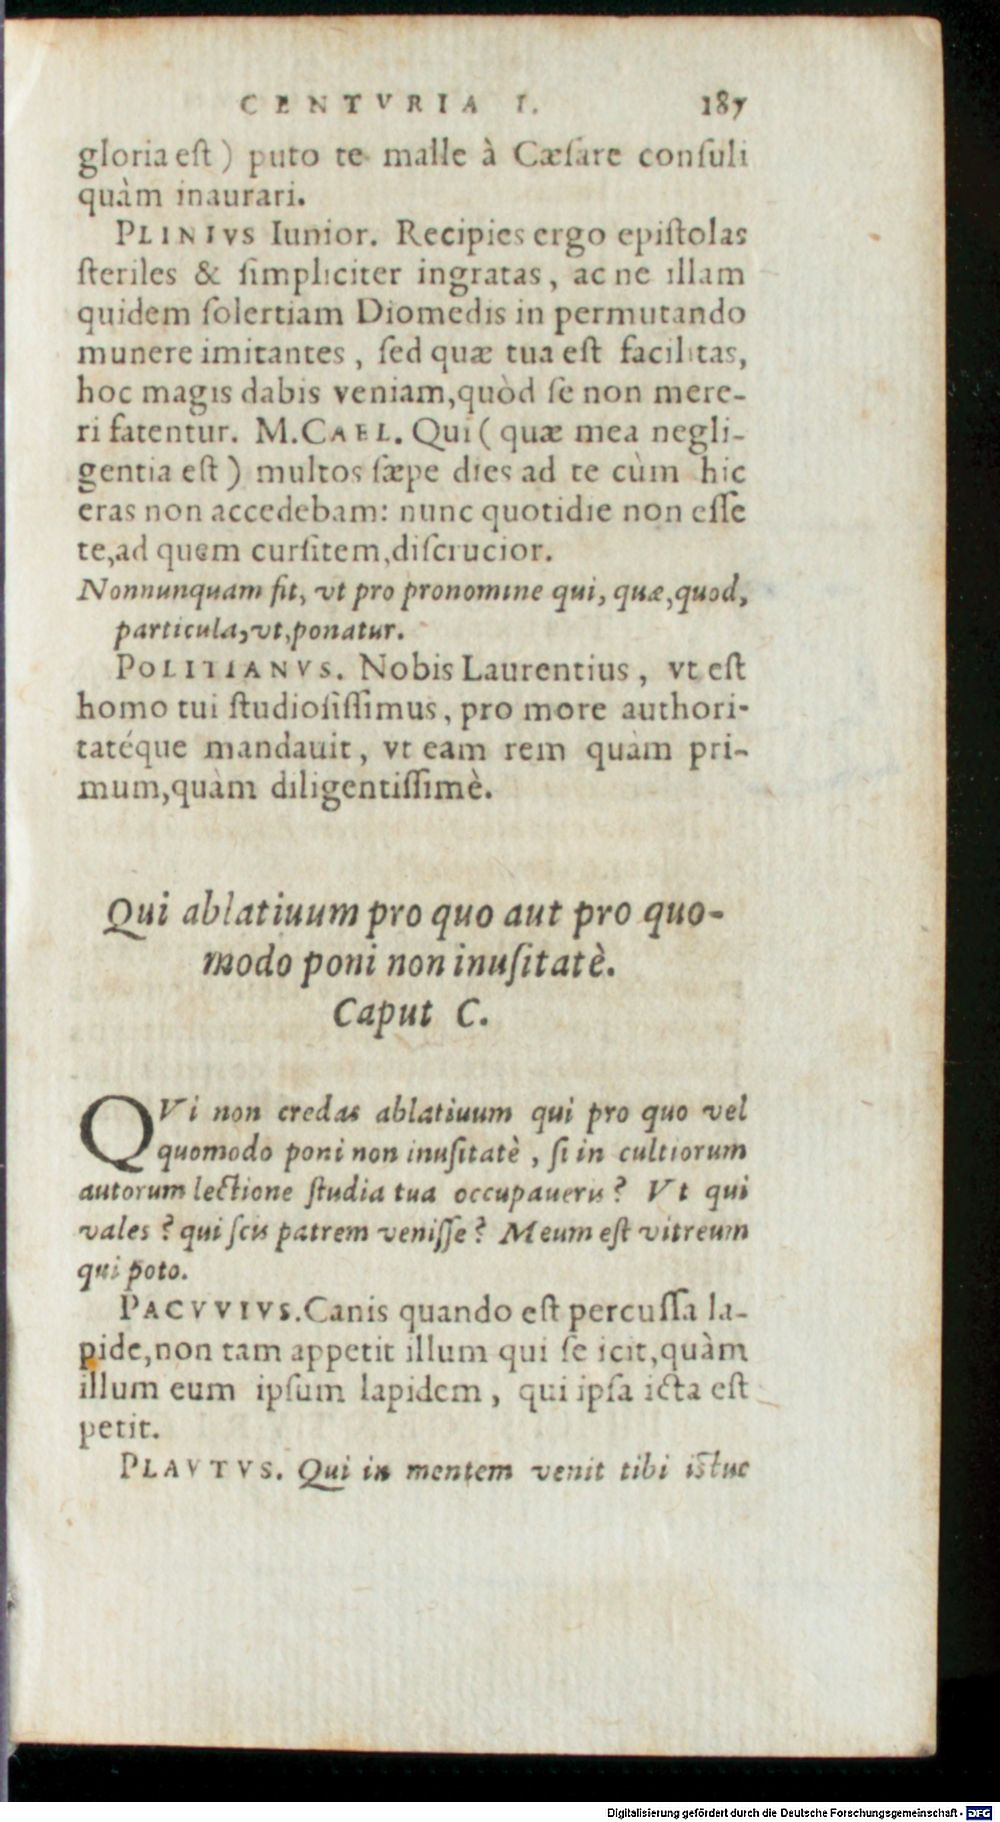 CENTVRIA I. 187
gloria est) puto te malle à Cæsare consuli
quàm inaurari.
PLINIVS Iunior. Recipies ergo epistolas
steriles & simpliciter ingratas, ac ne illam
quidem solertiam Diomedis in permutando
munere imitantes, sed quæ tua est facilitas,
hoc magis dabis veniam,quòd se non mere-
ri fatentur. M.CAEL. Qui ( quæ mea negli-
gentia est) multos sæpe dies ad te cùm hic
eras non accedebam: nunc quotidie non esse
te,ad quem cursitem,discrucior.
Nonnunquam fit, vt pro pronomine qui, quæ,quod,
particula,vt,ponatur.
POLITIANVS. Nobis Laurentius, vt est
homo tui studiosissimus, pro more authori-
tatéque mandauit, vt eam rem quàm pri-
mum,quàm diligentissimè.
Qui ablatiuum pro quo aut pro quo-
modo poni non inusitatè.
Caput C.
QVi non credas ablatiuum qui pro quo vel
quomodo poni non inusitatè, si in cultiorum
autorum lectione studia tua occupaueris? Vt qui
vales? qui scis patrem venisse? Meum est vitreum
qui poto.
PACVVIVS.Canis quando est percussa la-
pide,non tam appetit illum qui se icit,quàm
illum eum ipsum lapidem, qui ipsa icta est
petit.
PLAVTVS. Qui in mentem venit tibi istuc
Digitalisierung gefördert durch die Deutsche Forschungsgemeinschaft - DFG